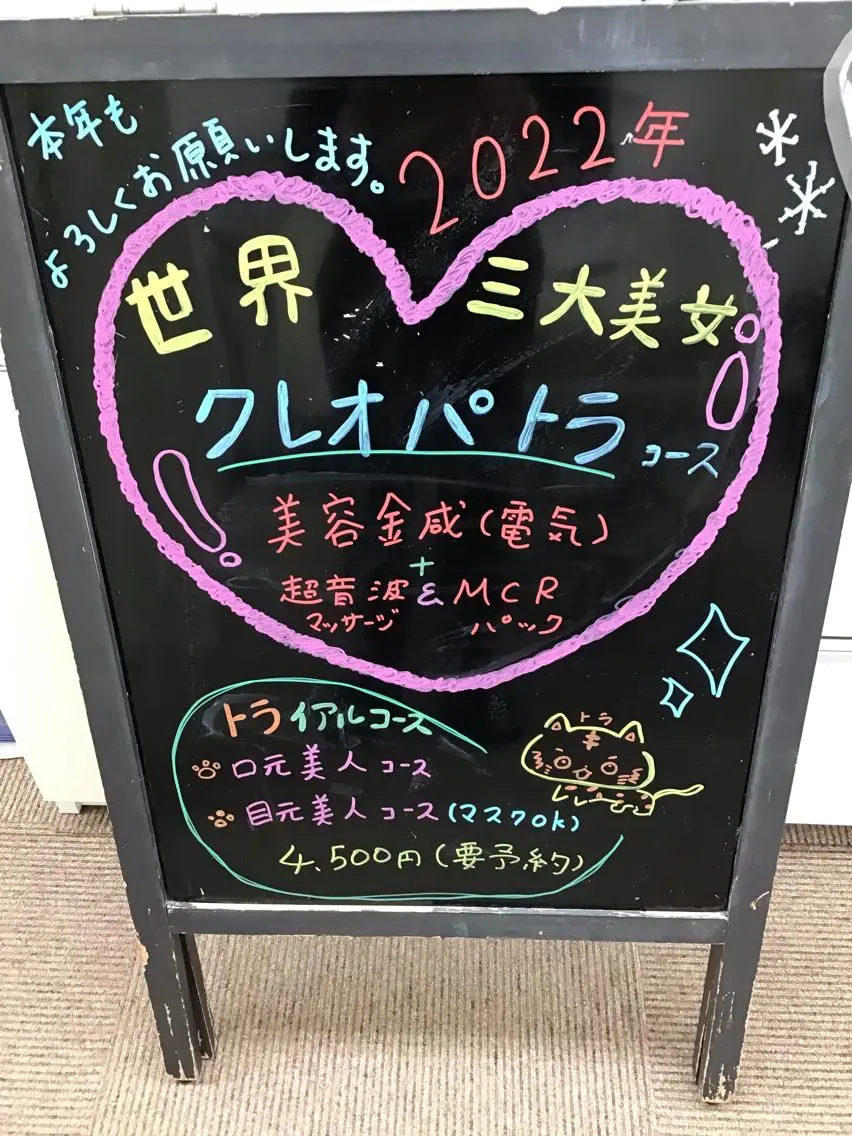 本年も
よろしくお願いします。
2022年
世界
三大美女
クレオパトラ コース
美容金咸(電気)
+
超音波 & MCR
マッサージ パック
トライアルコース
口元美人 コース
目元美人 コース(マスクOk)
4,500円(要予約)
トラ